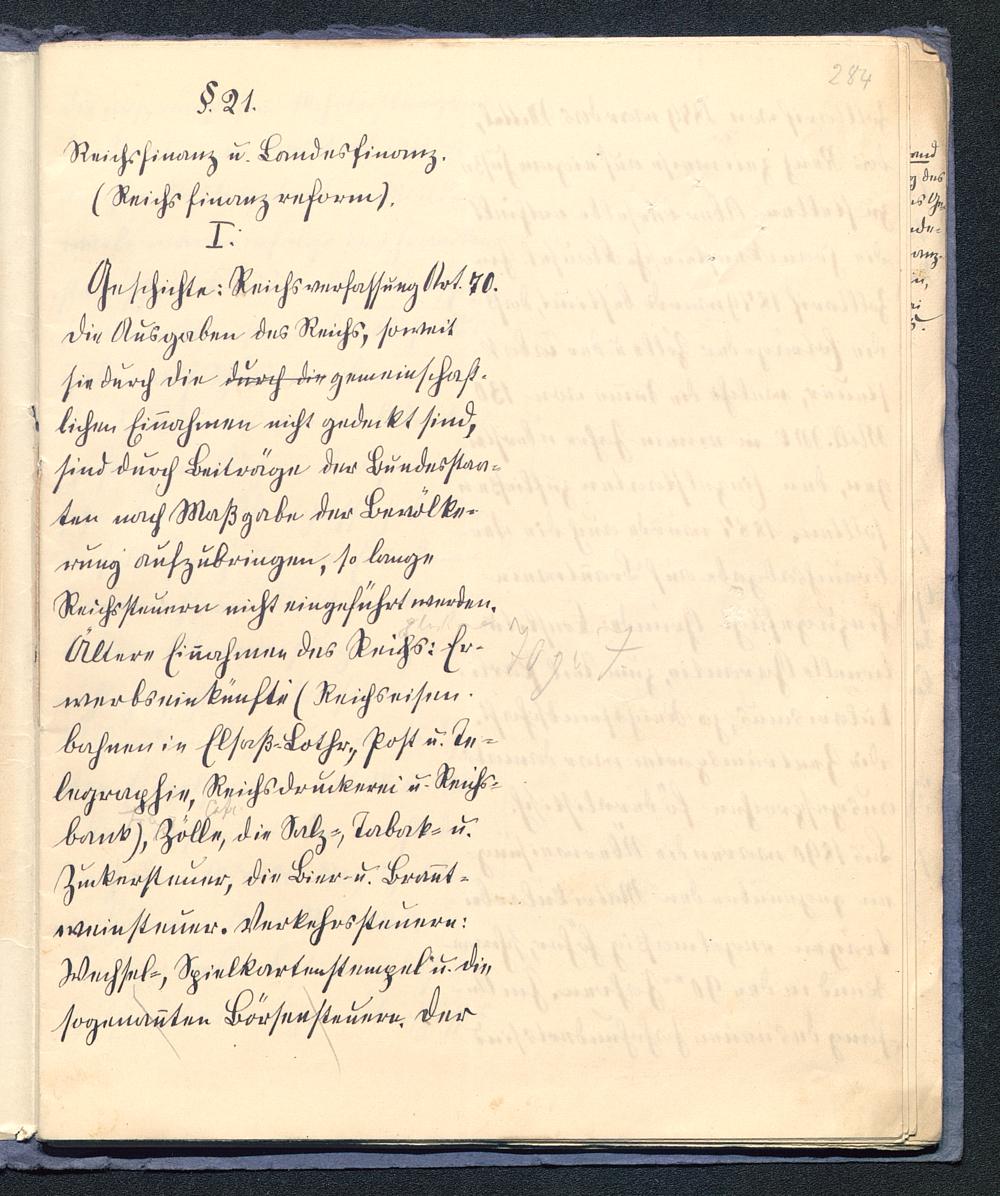 284
§. 21.
Reichsfinanz u. Landesfinanz.
(Reichsfinanzreform).
I.
Geschichte: Reichsverfassung Art. 70.
Die Ausgaben des Reichs, soweit
sie durch die durch die gemeinschaft-
lichen Einnahmen nicht gedeckt sind,
sind durch Beiträge der Bundesstaa-
ten nach Maßgabe der Bevölke-
rung aufzubringen, so lange
Reichssteuern nicht eingeführt werden.
Ältere Einnahmen des Reichs: Er-
werbseinkünfte (Reichseisen-
bahnen in Elsaß-Lothr., Post u. Te-
legraphie, Reichsdruckerei u. Reichs-
bank), Zölle, die Salz-, Tabak- u.
Zuckersteuer, die Bier- u. Brannt-
weinsteuer. Verkehrssteuern:
Wechsel-, Spielkartenstempel u. die
sogenannten Börsensteuern. Der